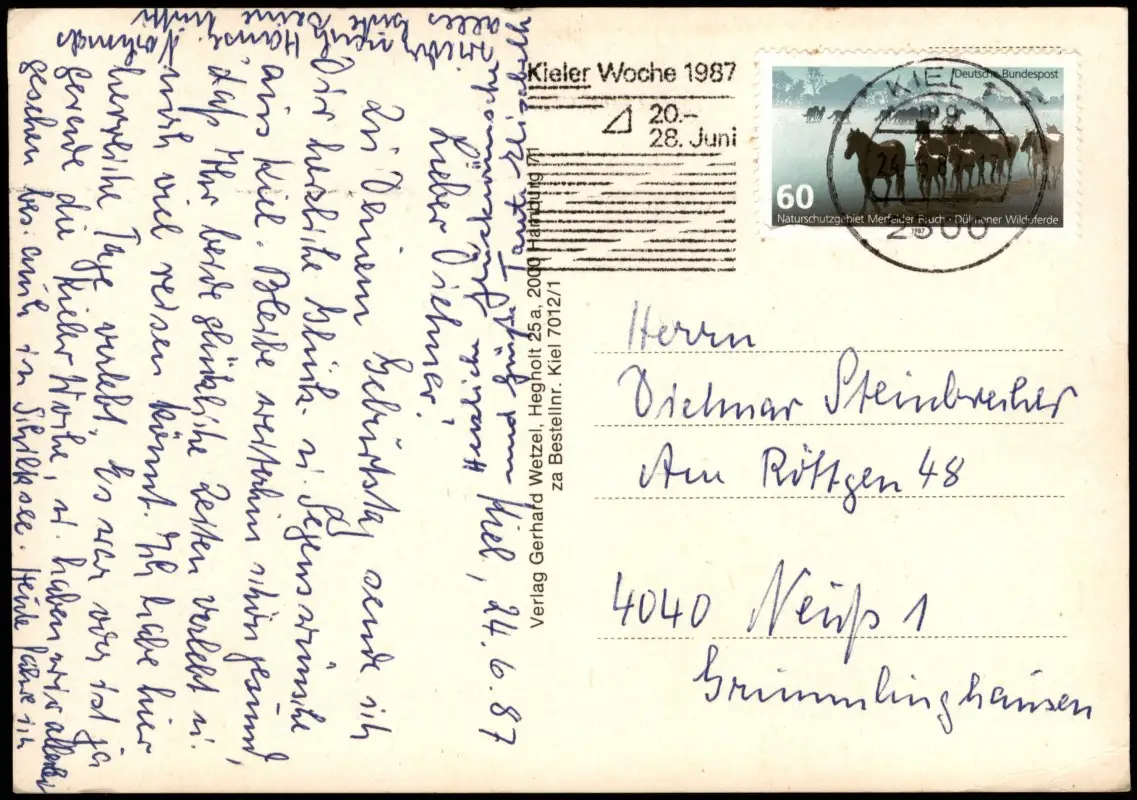 Kiel, 24.6.87
Lieber Dietmar!
Zu Deinem Geburtstag sende ich
Dir herzliche Glück- u. Segenswünsche
aus Kiel. Bleibe weiterhin schön gesund,
daß Ihr beide glückliche Zeiten verlebt u.
noch viel reisen könnt. Ich habe hier
herrliche Tage verlebt. Es war oder ist ja
gerade die Kieler Woche, u. haben wir allerlei
gesehen bei auch in Schilksee. Heute fahre ich
wieder nach Hause. Nochmals
alles Gute Deine
Herzlichen Glückwünsche
und Grüße Tante Elisabeth
Verlag Gerhard Wetzel, Hegholt 25a, 2000 Hamburg 71
za Bestellnr. Kiel 7012/1
Kieler Woche 1987
20.–
28. Juni
KIEL
24
2300
Deutsche Bundespost
60
Naturschutzgebiet Merfelder Bruch · Dülmener Wildpferde
1987
Herrn
Dietmar Steinbrecher
Am Röttgen 48
4040 Neuß 1
Grimmlinghausen